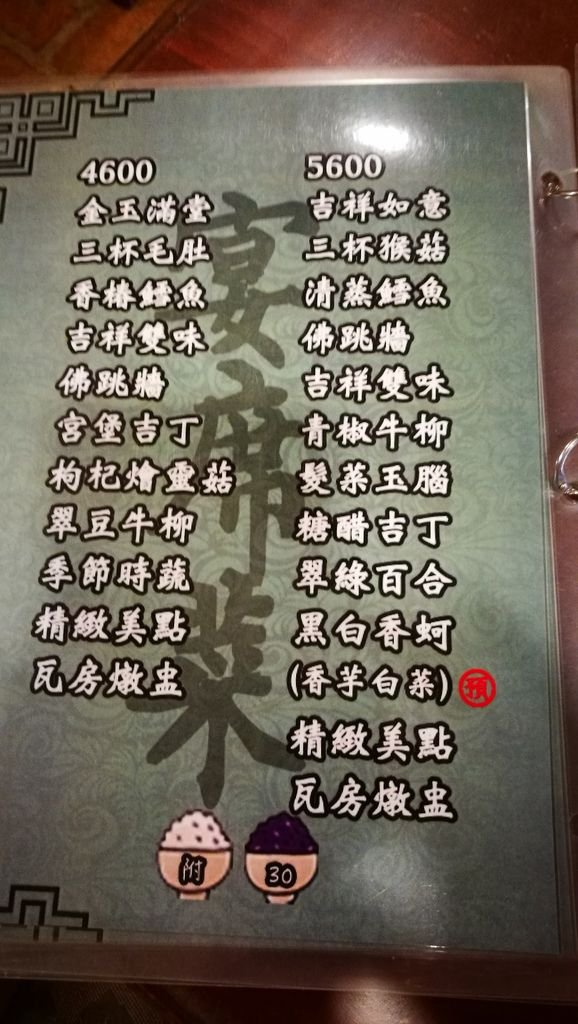 4600
金玉滿堂
三杯毛肚
香椿鱈魚
吉祥雙味
佛跳牆
宮堡吉丁
枸杞燴靈菇
翠豆牛柳
季節時蔬
精緻美點
瓦房燉盅
5600
吉祥如意
三杯猴菇
清蒸鱈魚
佛跳牆
吉祥雙味
青椒牛柳
髮菜玉腦
糖醋吉丁
翠綠百合
黑白香蚵
(香芋白菜) 預
精緻美點
瓦房燉盅
宴席菜
附
30